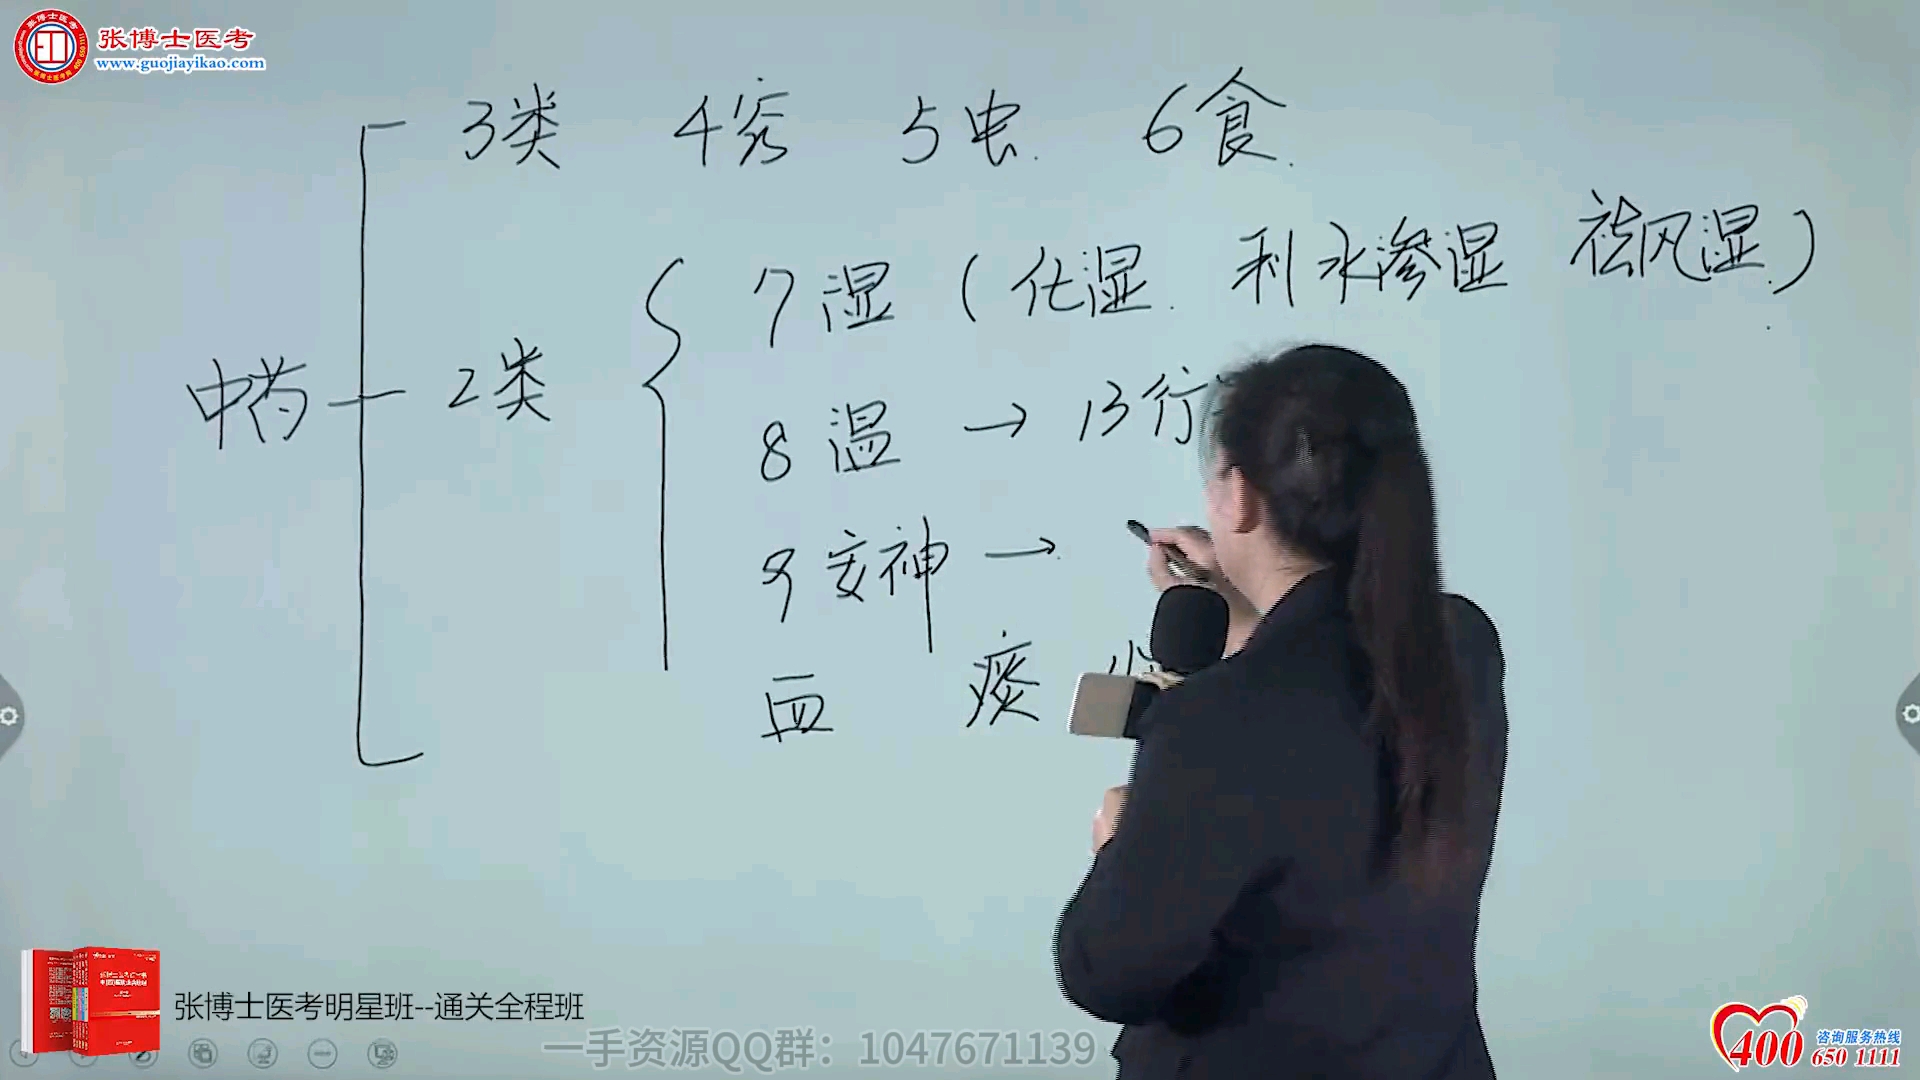 张博士医考
www.guojiayikao.com
3类 4客 5虫 6食
7湿（化湿 利水渗湿 祛风湿）
中药 2类
8温 → 13行
9安神 →
血 痰
张博士医考明星班--通关全程班
一手资源QQ群：1047671139
400 咨询服务热线
650 1111